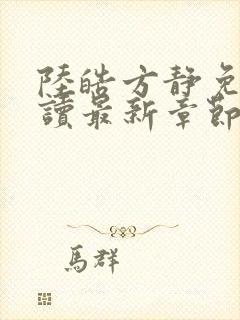 陸皓方靜免
讀最新章節
馬群